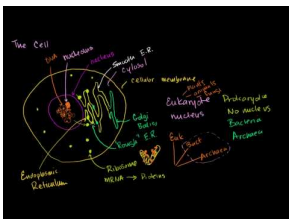 The Cell
DNA
nucleolus
nucleus
Smooth E.R.
Cytosol
cellular membrane
Golgi
Bodies
Rough E.R.
Endoplasmic
Reticulum
Ribosome
mRNA → Proteins
plants
animals
fungi
Eukaryote
nucleus
Prokaryote
No nucleus
Bacteria
Archaea
Euk
Bact
Archaea